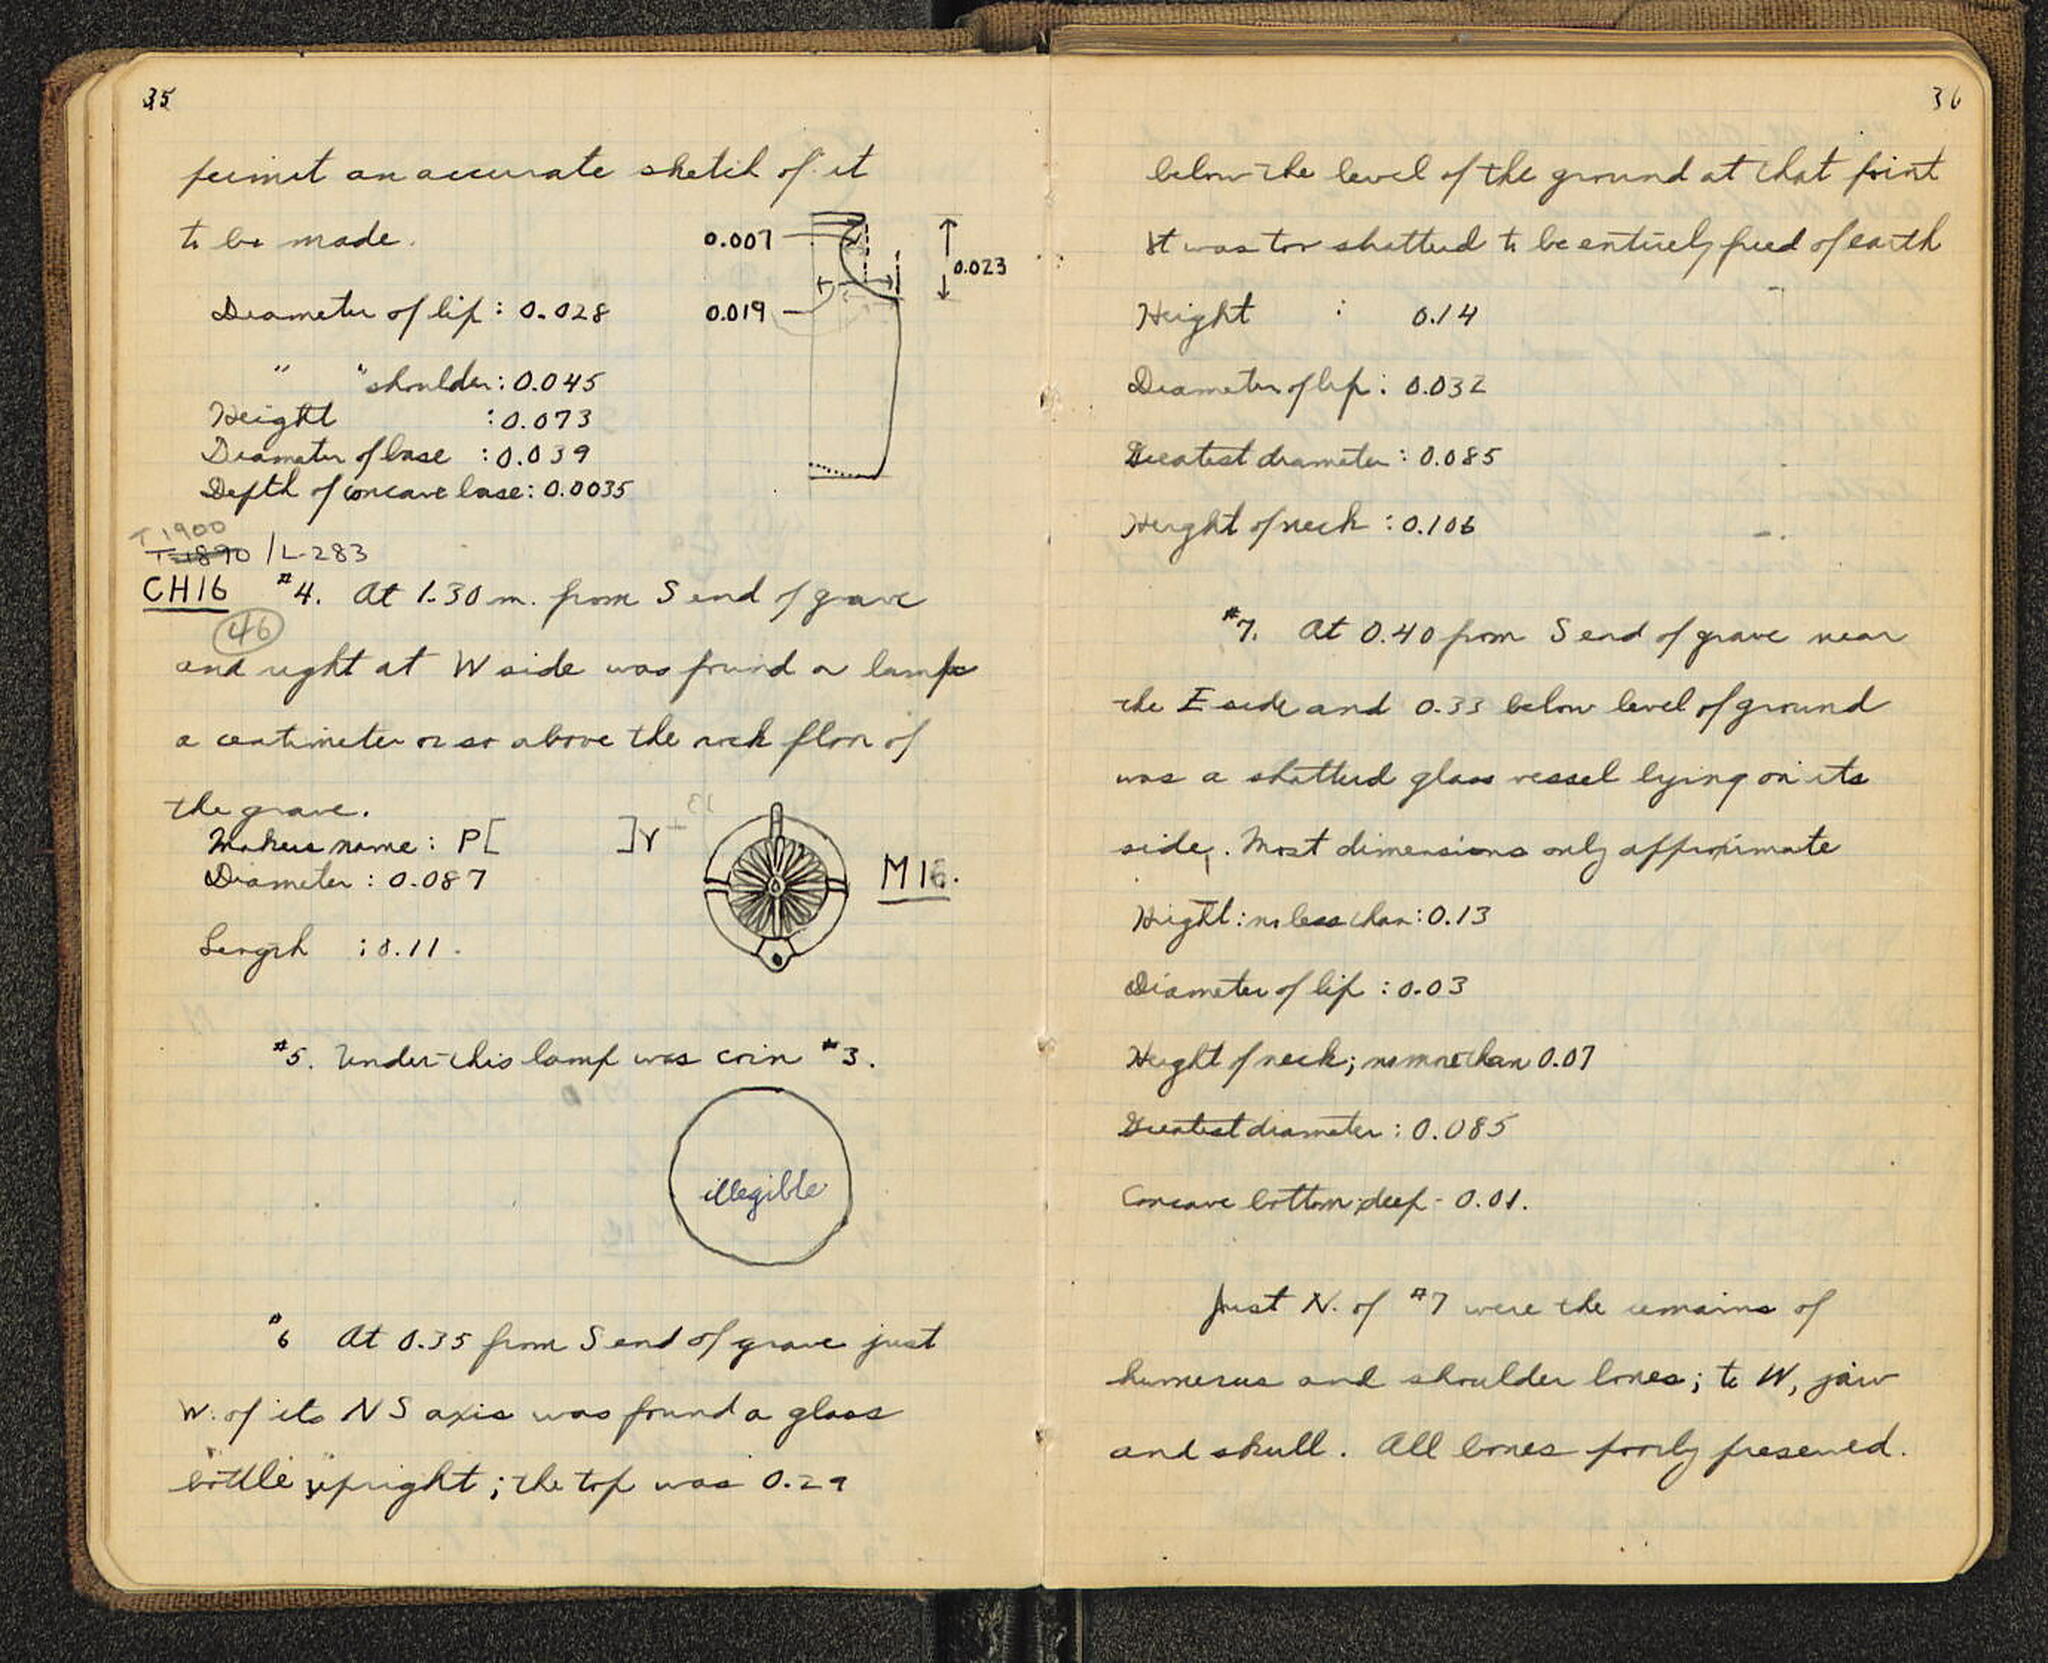 35
permit an accurate sketch of it
to be made.
0.007
0.023
Diameter of lip : 0.028
0.019
" " shoulder : 0.045
Height : 0.073
Diameter of base : 0.039
Depth of concave base : 0.0035
T 1900
T-1890 / L-283
CH16 #4. At 1.30 m. from S end of grave
46
and right at W side was found a lamp
a centimeter or so above the rock floor of
the grave.
Makers name : P[ ]Υ
Diameter : 0.087
M16.
Length : 0.11.
#5. Under this lamp was coin #3.
illegible
#6 At 0.35 from S end of grave just
W. of its NS axis was found a glass
bottle upright ; the top was 0.29
36
below the level of the ground at that point
It was too shattered to be entirely freed of earth
Height : 0.14
Diameter of lip : 0.032
Greatest diameter : 0.085
Height of neck : 0.106
#7. At 0.40 from S end of grave near
the E side and 0.33 below level of ground
was a shattered glass vessel lying on its
side. Most dimensions only approximate
Height : no less than : 0.13
Diameter of lip : 0.03
Height of neck ; no more than 0.07
Greatest diameter : 0.085
Concave bottom deep - 0.01.
Just N. of #7 were the remains of
humerus and shoulder bones ; to W, jaw
and skull. All bones poorly preserved.